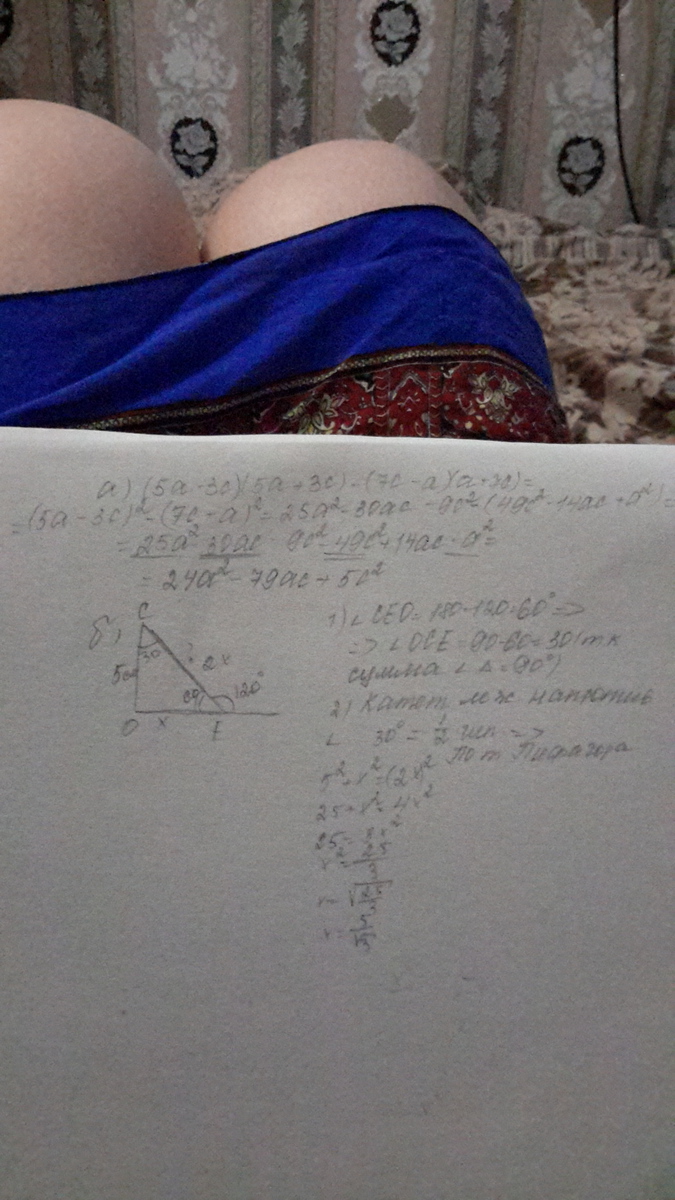 а) (5a-3c)(5a+3c)-(7c-a)(a+7c)=
=(5a-3c)²-(7c-a)²=25a²-30ac-9c²-(49c²-14ac+a²)=
=25a² 30ac 9c²-49c²+14ac-a²=
=24a²-79ac+5c²
б)
C
30
5см
?
2x
60
120°
O
x
E
1) ∠CEO=180-120=60°=>
=> ∠OCE=90-60=30(тк
сумма ∠ △=90°)
2) Катет леж напротив
∠ 30°=1/2 гип =>
По т Пифагора
5²+x²=(2x)²
25+x²=4x²
25=3x²
x²=25/3
x=√25/3
x=5/√3